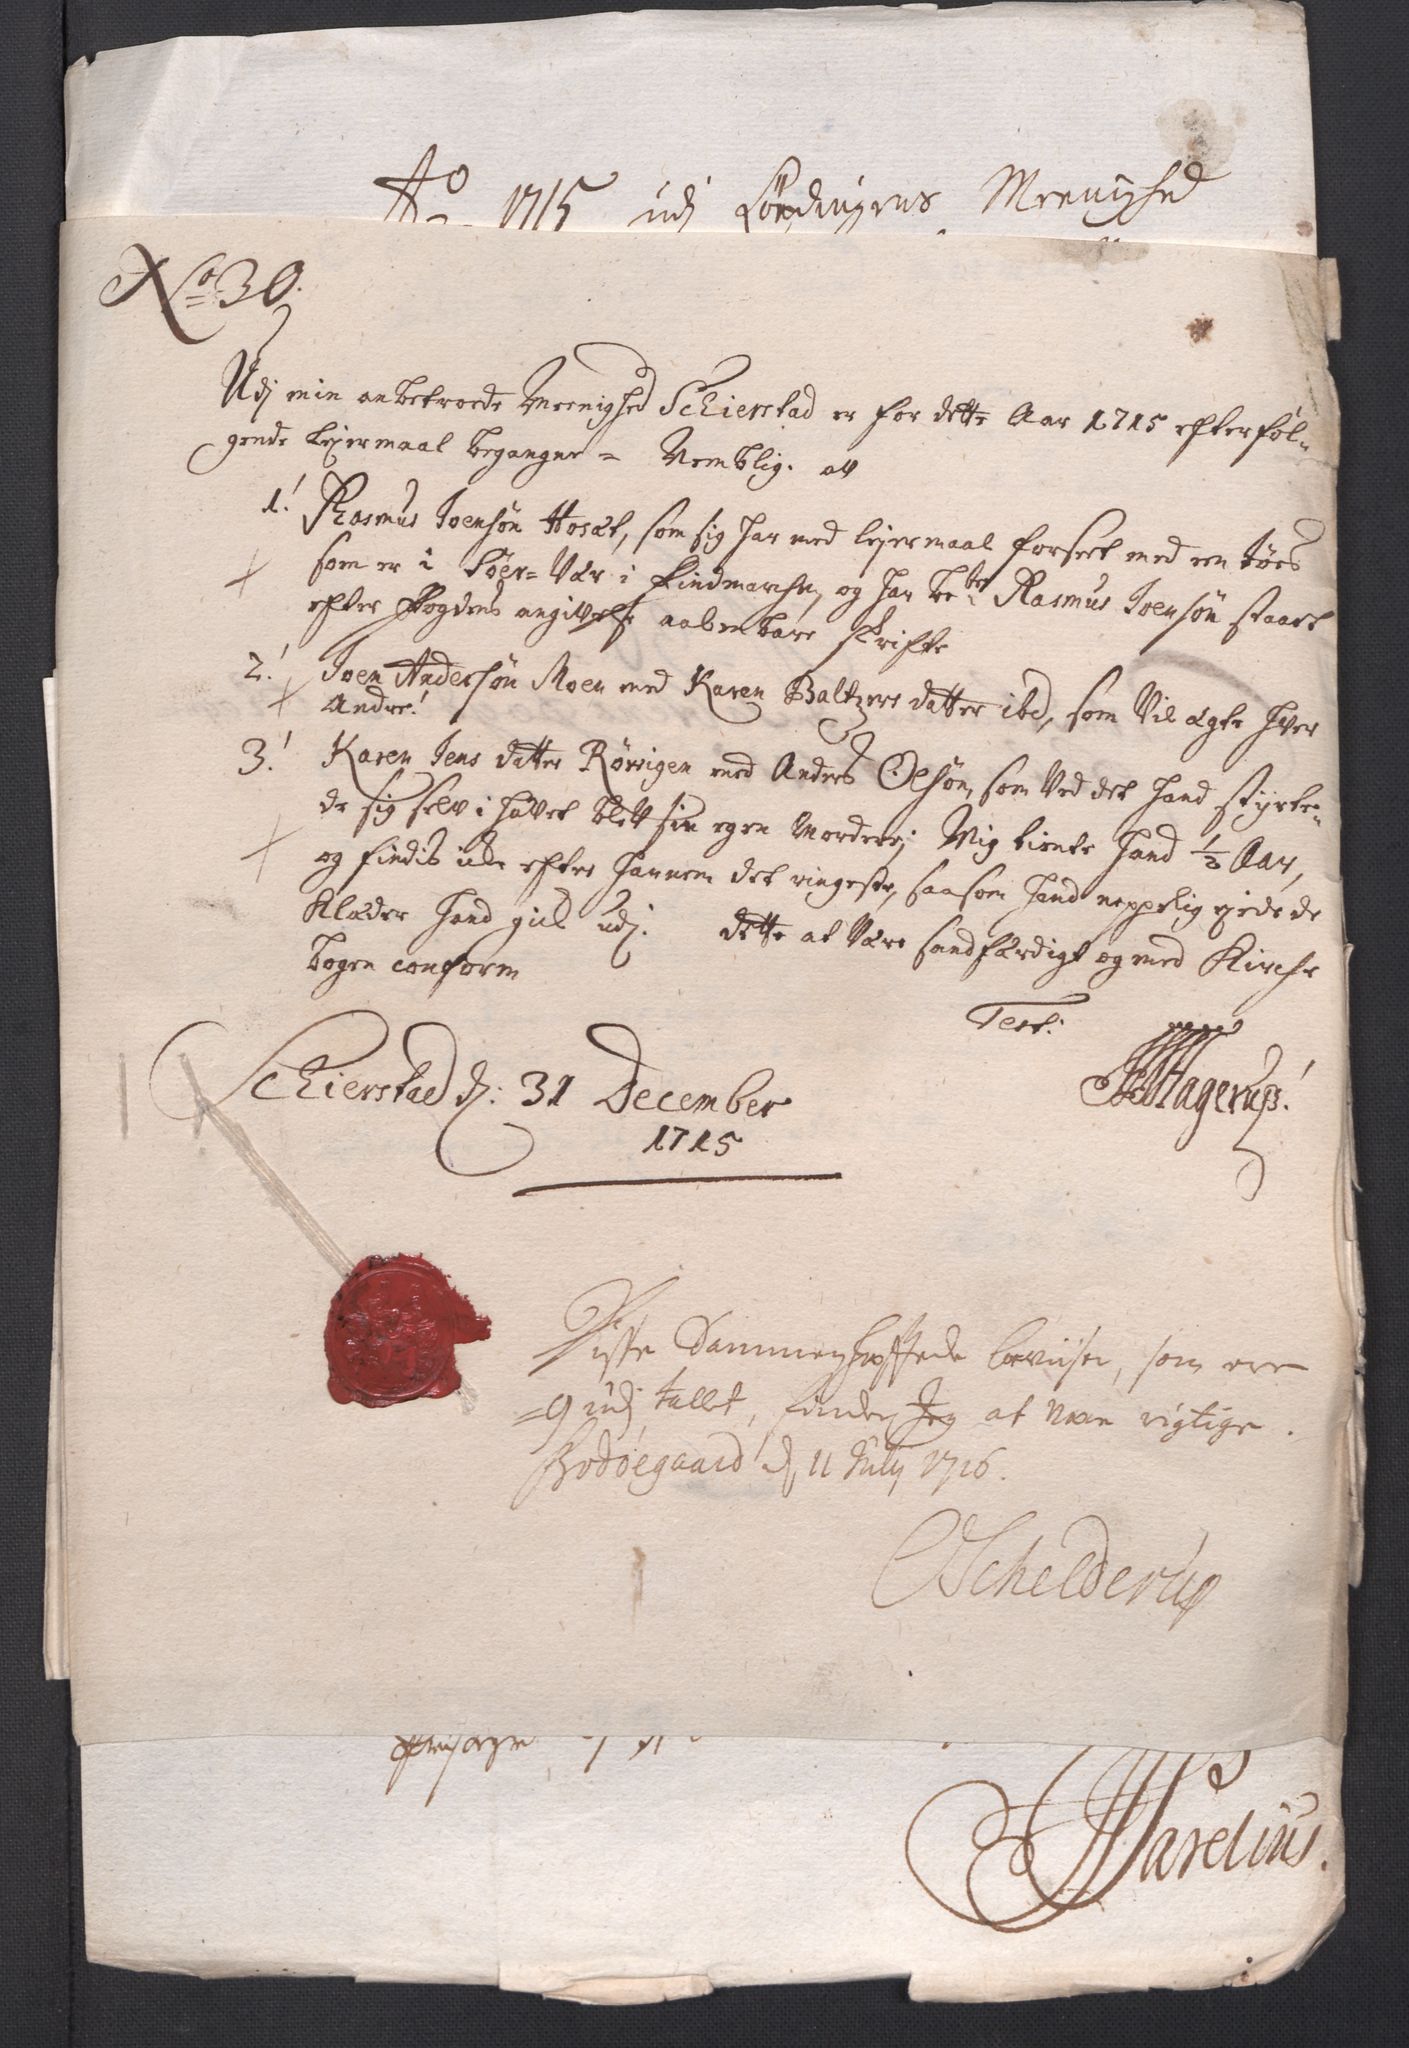 Ao 1715 udj Lødingens Meenighed
No 30.
Udj min anbetroede Meenighed Schierstad er for dette Aar 1715 efterføl-
gende Lejermaal begangne = Nemblig. av
1. Rasmus Joensøn Hosæt, som sig har med lejermaal forseet med een tøes
som er i Søer-Vær i Findmarchen, og har bete Rasmus Joensøn staaet
efter Fogdens angivelse aabenbare skrifte
2. Joen Andersøn Moen med Karen Baltzers datter ibd, som Vil ægte hver
Andre!
3. Karen Jens datter Rørvigen med Anders Olsøn, som Ved det hand styrte-
de sig selv i havet blev sin egen Mordere; Mig tiente hand 1/2 Aar,
og findis icke efter hannem det ringeste, saasom hand neppelig ejede de
Klæder hand gik udj. dette at Være sandfærdigt og med Kirche
bogen conform
Test:
Schierstad d: 31 December
1715
Hagerup!
Disse Sammenhæftede beviiser, som ere
=9 udj tallet, finder Jeg at være rigtige.
Bodøegaard d. 11 Julij 1716.
Schelderup
Parelius.